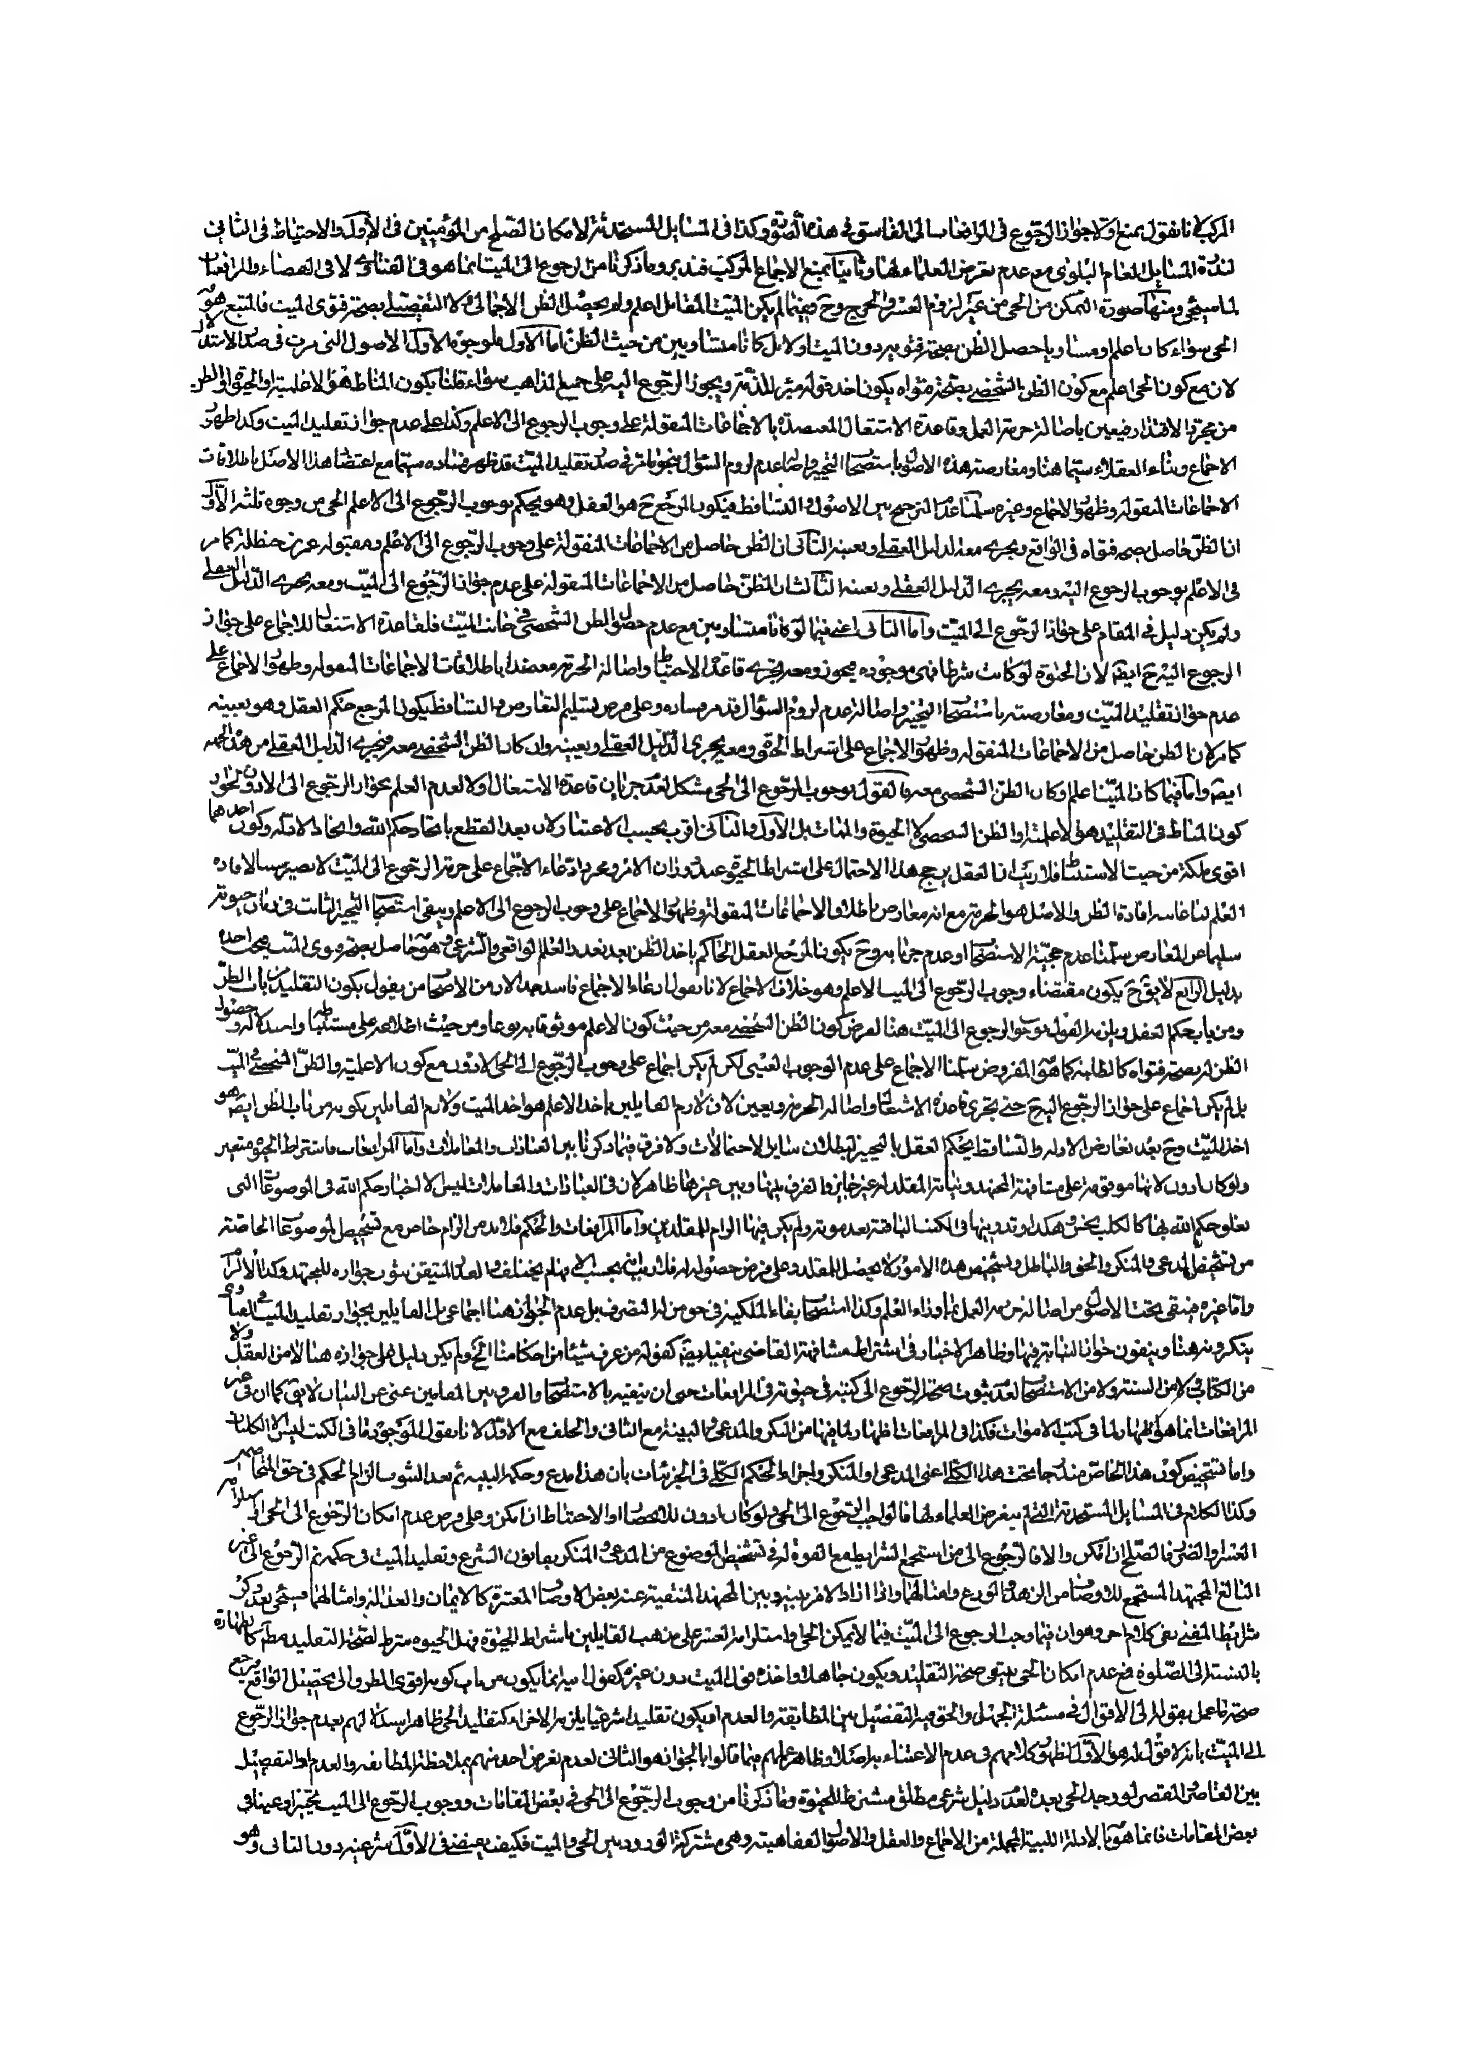 المركب لانا نقول بمنع اولا جواز الرجوع في الواقعات الى الفاسق في هذه الصورة وكذا في المسايل المستحدثة لامكان الصلح من المؤمنين في الاول والاحتياط في الثاني
لندرة المسايل العام البلوى مع عدم تعرض العلماء لها وثانيا بمنع الاجماع المركب فتدبر وما ذكرنا من الرجوع الى الميت انما هو في الفتاوى لا في القضاء والمرافعات
لما سيجئ ومنها صورة التمكن من الحي من غير لزوم العسر والحرج وح فيما لم يكن الميت المقابل اعلم ولم يحصل الظن الاجمالي ولا التفصيلي بصحة فتوى الميت فالمتبع هو
الحي سواء كان اعلم او مساويا حصل الظن بصحة فتويه دون الميت اولا بل كانا متساويين من حيث الظن اما الاول فلوجوه الاول الاصول التي مرت في صدر الاستدلال
لان مع كون الحي اعلم مع كون الظن الشخصي بصحة فتواه يكون اخذ قوله مبرء للذمة ويجوز الرجوع اليه على جميع المذاهب سواء قلنا بكون المناط هو الاعلمية او الحيوة او الظن
من مجرد الاقتداء فيعين باصالة حرمة العمل وقاعدة الاشتغال المعتضدة بالاجماعات المنقولة على وجوب الرجوع الى الاعلم وكذا على عدم جواز تقليد الميت وكذا ظهور
الاجماع وبناء العقلاء سيما هنا ومعارضة هذه الاصول باستصحاب التخيير واصل عدم لزوم السؤال بنحو ما مر في صدر تقليد الميت قد ظهر فساده سيما مع اعتضاد هذا الاصل باطلاقات
الاجماعات المنقولة وظهور الاجماع وغيره سلمنا عدم الترجيح بين الاصول والتساقط فيكون المرجع ح هو العقل وهو يحكم بوجوب الرجوع الى الاعلم الحي من وجوه ثلثة الاول
ان الظن حاصل بصحة فتواه في الواقع ويجري معه الدليل العقلي وبعينه الثاني ان الظن حاصل من الاجماعات المنقولة على وجوب الرجوع الى الاعلم ومقبولة عمر بن حنظلة كما مر
في الاعلم بوجوب الرجوع اليه ومعه يجري الدليل العقلي وبعينه الثالث ان الظن حاصل من الاجماعات المنقولة على عدم جواز الرجوع الى الميت ومعه يجري الدليل العقلي
ولم يكن دليل في المقام على جواز الرجوع الى الميت واما الثاني اعني فيما لو كانا متساويين مع عدم حصول الظن الشخصي في جانب الميت فلقاعدة الاشتغال للاجماع على جواز
الرجوع اليه ح ايضا لان الحيوة لو كانت شرطا فهي موجودة فيجوز ومعه يجري قاعدة الاحتياط واصالة الحرمة معتضدا باطلاقات الاجماعات المنقولة وظهور الاجماع على
عدم جواز تقليد الميت ومعارضته باستصحاب التخيير واصالة عدم لزوم السؤال قد مر فساده وعلى فرض تسليم التعارض والتساقط يكون المرجع حكم العقل وهو بعينه
كما مر لان الظن حاصل من الاجماعات المنقولة وظهور الاجماع على اشتراط الحيوة ومعه يجري الدليل العقلي وبعينه وان كان الظن الشخصي معه فيجري الدليل العقلي من هذه الجهة
ايضا واما فيما كان الميت اعلم وكان الظن الشخصي معه فالقول بوجوب الرجوع الى الحي مشكل لعدم جريان قاعدة الاشتغال اولا لعدم العلم بجواز الرجوع الى الادون لجواز
كون المناط في التقليد هو الاعلمية او الظن الشخصي لا الحيوة والممات بل الاول والثاني اقرب بحسب الاعتبار لان بعد القطع باتحاد حكم الله واتحاد الادلة وكون احدهما
اقوى ملكة من حيث الاستنباط فلا ريب ان العقل يرجح هذا الاحتمال على اشتراط الحيوة عند دوران الامر ومجرد ادعاء الاجماع على حرمة الرجوع الى الميت لا يصير سببا لافادة
العلم لنا غايته افادة الظن والاصل هو الحرمة مع انه معارض باطلاق الاجماعات المنقولة وظهور الاجماع على وجوب الرجوع الى الاعلم ويبقى استصحاب التخيير الثابت في زمان حيوته
سليما عن المعارض سلمنا عدم حجية الاستصحاب او عدم جريانه وح يكون المرجع العقل الحاكم باخذ الظن بعد تعذر العلم الواقعي والشرعي وهو حاصل بصحة فتوى الميت فيجب اخذه
بدليل الرابع لا يق ح يكون مقتضاه وجوب الرجوع الى الميت الاعلم وهو خلاف الاجماع لانا نقول ادعاء الاجماع فاسد
ومن باب حكم العقل ويلزمه القول بوجوب الرجوع الى الميت هنا لفرض كون الظن الشخصي معه من حيث كون الاعلم موثوقا به نوعا ومن حيث اطلاعه على مستنبطه واستدلاله وحصول
الظن له بصحة فتواه كالظانية كما هو المفروض سلمنا الاجماع على عدم الوجوب العيني لكن لم يكن اجماع على وجوب الرجوع الى الحي الادون مع كون الاعلمية والظن الشخصي في الميت
بل لم يكن اجماع على جواز الرجوع اليه ح حتى تجري قاعدة الاشتغال واصالة الحرمة وبعين لان لازم القايلين باخذ الاعلم هو اخذ الميت ولازم القايلين بكونه من باب الظن ايضا هو
اخذ الميت وح بعد تعارض الادلة والتساقط يحكم العقل بالتخيير لبطلان ساير الاحتمالات ولا فرق فيما ذكرنا بين العبادات والمعاملات واما المرافعات فاشتراط الحيوة متعين
ولو كان ادون لانها موقوفة على مشافهة المجتهد ونيابة المقلد له غير جايز والفرق بينها وبين غيرها ظاهر لان في العبادات والمعاملات ليس الا اخبار حكم الله في الموضوعات التي
تعلق حكم الله بها كالكلب نجس وهكذا وتدوينها في الكتب الباقية بعد موته ولم يكن فيها الزام للمقلدين واما المرافعات والحكم فلا بد من الزام خاص مع تشخيص الموضوعات الخاصة
من تشخيص المدعي والمنكر والحق والباطل وتشخيص هذه الامور لا يحصل للمقلد وعلى فرض حصوله له فلا ريب انه بحسب الافهام يختلف والقدر المتيقن ثبوت جوازه للمجتهد وكذا الالزام
واما غيره فيبقى تحت الاصول من اصالة حرمة العمل بما وراء العلم وكذا استصحاب بقاء الملكية في حق من له التصرف بل عدم الجواز هنا اجماعي بل القايلين بجواز تقليد الميت في الفتاوى
ينكرونه هنا وينفون جواز النيابة فيها وظاهر الاخبار في اشتراط مشافهة القاضي ينفيه ايضا كقوله من عرف شيئا من احكامنا الخ ولم يكن دليل على جوازه هنا لا من العقل ولا
من الكتاب ولا من السنة ولا من الاستصحاب لعدم ثبوت صحة الرجوع الى كتبه في حيوته في المرافعات حتى ان ينفيه بالاستصحاب والفرق بين المقامين غني عن البيان لا يق كما ان في غير
المرافعات انما هو اظهار لما في كتب الاموات فكذا في المرافعات اظهار لما فيها من المنكر والمدعي والبينة مع الثاني والحلف مع الاول لانا نقول الموجود في الكتب ليس الا الكليات
واما تشخيص كون هذا الخاص مندرجا تحت هذا الكلي اعني المدعي او المنكر واجراء الحكم الكلي في الجزئيات بان هذا مدع وحكمه البينة ثم بعد الثبوت الزام الحكم في حق المتخاصم
وكذا الكلام في المسايل المستحدثة التي لم يتعرض العلماء لها فالواجب الرجوع الى الحي ولو كان ادون للاستصحاب او الاحتياط ان امكن وعلى فرض عدم امكان الرجوع الى الحي او استلزامه
العسر والضرر فالصلح ان امكن والا فالرجوع الى من استجمع الشرايط مع القوة له في تشخيص الموضوع من المدعي والمنكر بقانون الشرع وتقليد الميت في حكمه ثم الرجوع الى غير
البالغ المجتهد المستجمع للاوصاف من الزهد والورع وامثالهما واذا دار الامر بينه وبين المجتهد المنتفية عنه بعض الاوصاف المعتبرة كالايمان والعدالة وامثالهما فسيجئ بعد ذكر
شرايط المفتي بقي كلام اخر وهو ان فيما وجب الرجوع الى الميت فيما لا يمكن الحي او استلزامه العسر على مذهب القايلين باشتراط الحيوة فهل الحيوة شرط لصحة التقليد مطلقا كالطهارة
بالنسبة الى الصلوة فمع عدم امكان الحي ينتفي صحة التقليد ويكون جاهلا واخذه قول الميت دون غيره كقول اسيرا انما يكون من باب كونه اقوى الطرق الى تحصيل الواقع فيرجع
صحة ما عمل بقوله الى الاقوال في مسئلة الجهل والحق فيه التفصيل بين المطابقة والعدم او يكون تقليدا شرعيا يلزمه الاجزاء كتقليد الحي ظاهر استدلالهم بعدم جواز الرجوع
الى الميت بانه لا قول له هو الاول لظهور كلامهم في عدم الاعتناء به اصلا وظاهر عملهم فيما قالوا بالجواز هو الثاني لعدم تعرض احد منهم بملاحظة المطابقة والعدم او التفصيل
بين القاصر والمقصر لو وجد الحي بعده لعدم دليل شرعي مطلق مشترط للحيوة وما ذكرنا من وجوب الرجوع الى الحي في بعض المقامات ووجوب الرجوع الى الميت تخييرا او عينا في
بعض المقامات فانما هو بالادلة اللبية المجملة من الاجماع والعقل والاصول الفقاهية وهي مشتركة الورود بين الحي والميت فكيف يقتضي في الاول شرعيته دون الثاني وهو